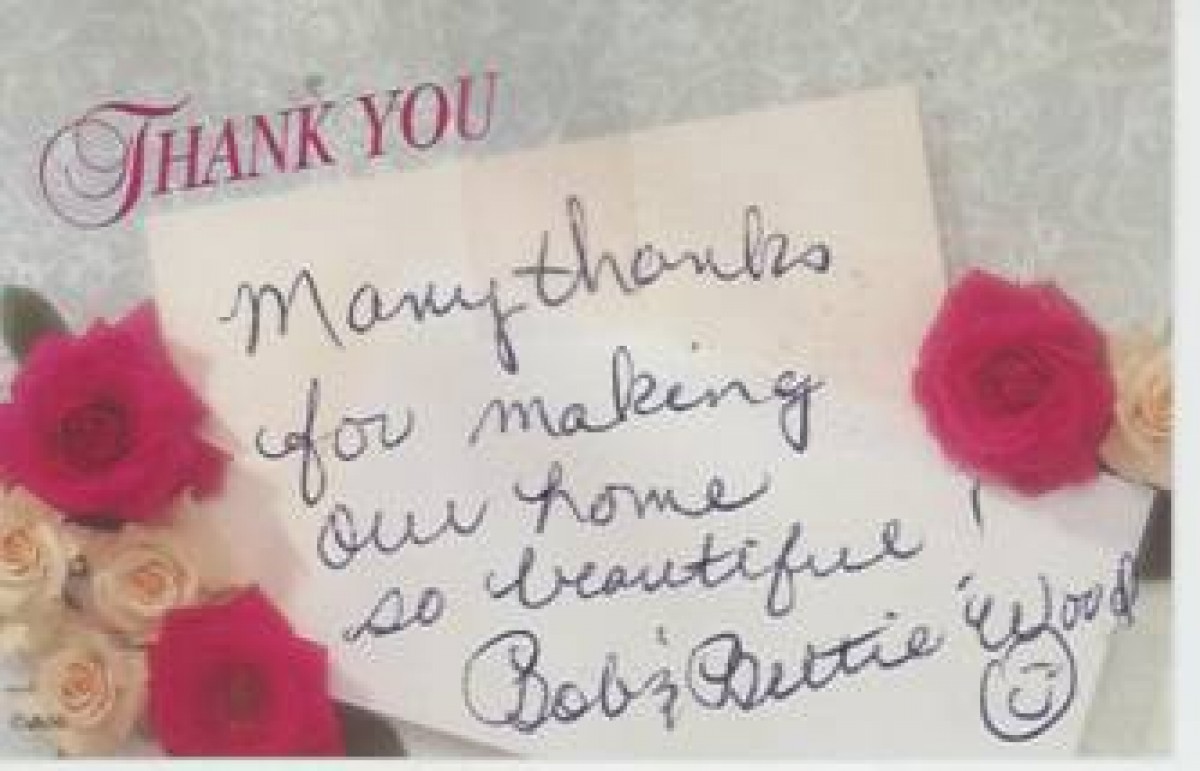 THANK YOU
Many thanks
for making
our home
so beautiful!
Bob & Bettie Wood